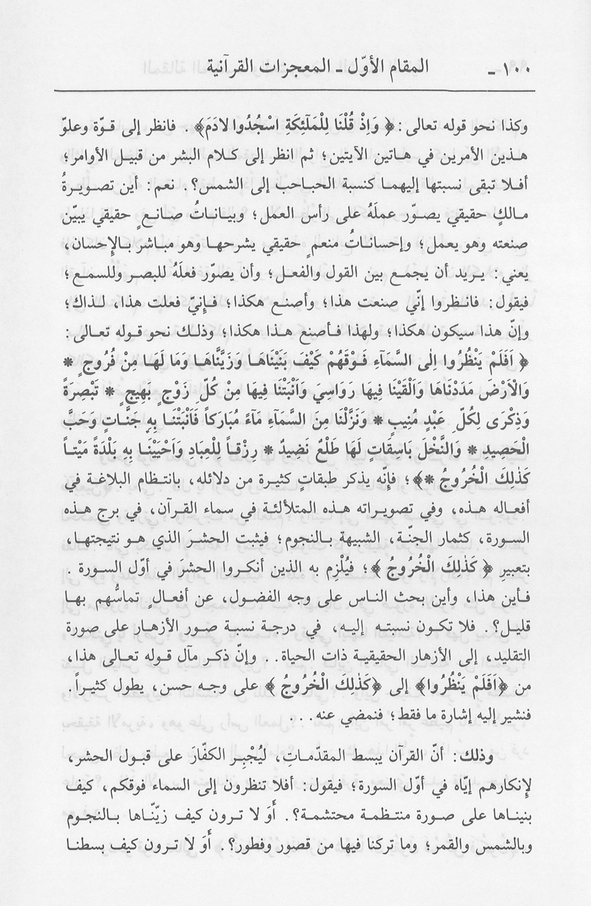 ١٠٠ - المقام الأوّل - المعجزات القرآنية
وكذا نحو قوله تعالى: ﴿ وَاِذْ قُلْنَا لِلْمَلٰٓئِكَةِ اسْجُدُوا لِاٰدَمَ﴾ . فانظر إلى قوّة وعلوّ
هذين الأمرين في هاتين الآيتين؛ ثم انظر إلى كلام البشر من قبيل الأوامر؛
أفلا تبقى نسبتها إليهما كنسبة الحباحب إلى الشمس؟. نعم: أين تصويرةُ
مالكٍ حقيقي يصوّر عملَهُ على رأس العمل؛ وبياناتُ صانعٍ حقيقي يبيّن
صنعته وهو يعمل؛ وإحساناتُ منعمٍ حقيقي يشرحها وهو مباشر بالإحسان،
يعني: يريد أن يجمع بين القول والفعل؛ وأن يصوّر فعلَهُ للبصر وللسمع؛
فيقول: فانظروا إنّي صنعت هذا؛ وأصنع هكذا؛ فإنيّ فعلت هذا، لذاك؛
وإنّ هذا سيكون هكذا؛ ولهذا فأصنع هذا هكذا؛ وذلك نحو قوله تعالى:
﴿ اَفَلَمْ يَنْظُرُوا اِلَى السَّمَٓاءِ فَوْقَهُمْ كَيْفَ بَنَيْنَاهَا وَزَيَّنَّاهَا وَمَا لَهَا مِنْ فُرُوجٍ *
وَالْاَرْضَ مَدَدْنَاهَا وَاَلْقَيْنَا فِيهَا رَوَاسِيَ وَاَنْبَتْنَا فِيهَا مِنْ كُلِّ زَوْجٍ بَهِيجٍ * تَبْصِرَةً
وَذِكْرَى لِكُلِّ عَبْدٍ مُنِيبٍ * وَنَزَّلْنَا مِنَ السَّمَٓاءِ مَٓاءً مُبَارَكاً فَاَنْبَتْنَا بِهِ جَنَّاتٍ وَحَبَّ
الْحَصِيدِ * وَالنَّخْلَ بَاسِقَاتٍ لَهَا طَلْعٌ نَضِيدٌ * رِزْقاً لِلْعِبَادِ وَاَحْيَيْنَا بِهِ بَلْدَةً مَيْتاً
كَذٰلِكَ الْخُرُوجُ *﴾؛ فإنّه يذكر طبقاتٍ كثيرة من دلائله، بانتظام البلاغة في
أفعاله هذه، وفي تصويراته هذه المتلألئة في سماء القرآن، في برج هذه
السورة، كثمار الجنّة، الشبيهة بالنجوم؛ فيثبت الحشرَ الذي هو نتيجتها،
بتعبير ﴿ كَذٰلِكَ الْخُرُوجُ ﴾؛ فيُلْزِم به الذين أنكروا الحشرَ في أوّل السورة .
فأين هذا، وأين بحث الناس على وجه الفضول، عن أفعالٍ تماسُّهم بها
قليل؟. فلا تكون نسبته إليه، في درجة نسبة صور الأزهار على صورة
التقليد، إلى الأزهار الحقيقية ذات الحياة.. وإنّ ذكر مآل قوله تعالى هذا،
من ﴿اَفَلَمْ يَنْظُرُوا﴾ إلى ﴿كَذٰلِكَ الْخُرُوجُ ﴾ على وجه حسن، يطول كثيراً.
فنشير إليه إشارة ما فقط؛ فنمضي عنه...
وذلك: أنّ القرآن يبسط المقدّماتِ، ليُجْبِر الكفّارَ على قبول الحشر،
لإنكارهم إيّاه في أوّل السورة؛ فيقول: أفلا تنظرون إلى السماء فوقكم، كيف
بنيناها على صورة منتظمة محتشمة؟. أَوَ لا ترون كيف زيّنّاها بالنجوم
وبالشمس والقمر؛ وما تركنا فيها من قصور وفطور؟. أَوَ لا ترون كيف بسطنا